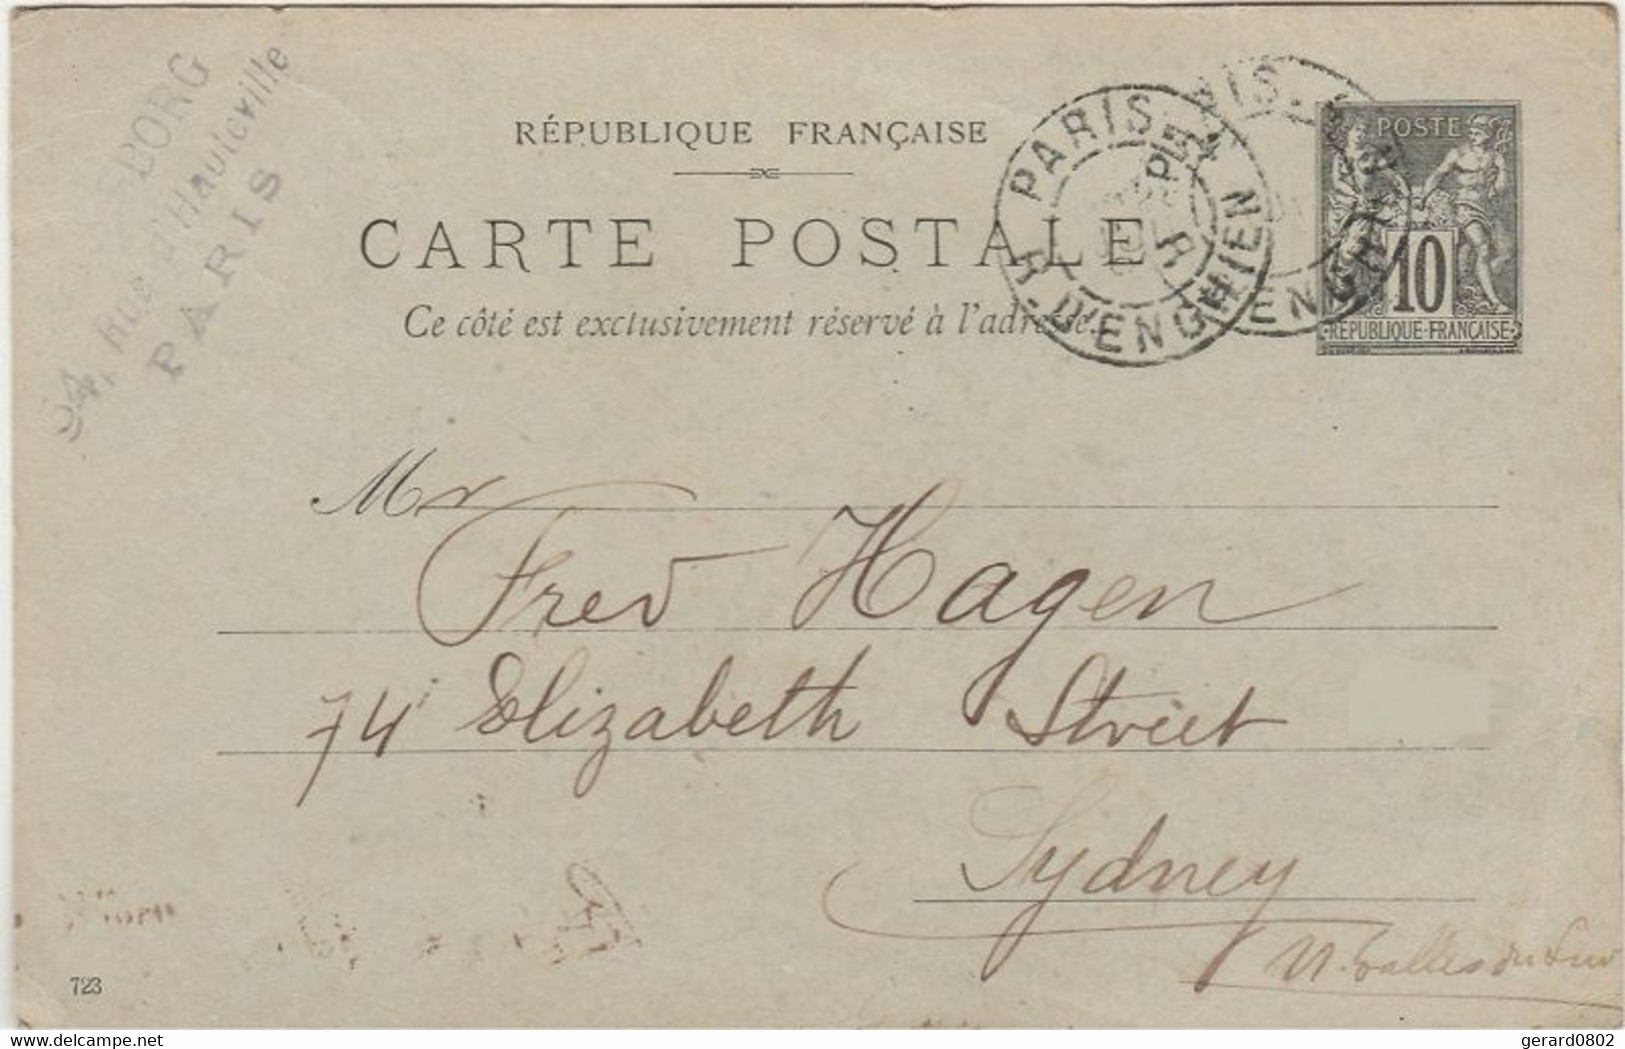 BORG
54, Rue d'Hauteville
PARIS
RÉPUBLIQUE FRANÇAISE
CARTE POSTALE
Ce côté est exclusivement réservé à l'adresse.
PARIS
R. D'ENGHIEN
POSTE
10
RÉPUBLIQUE FRANÇAISE
Mr
Fred Hagen
74 Elizabeth Street
Sydney
N. Galles du Sud
723
delcampe.net
gerard0802